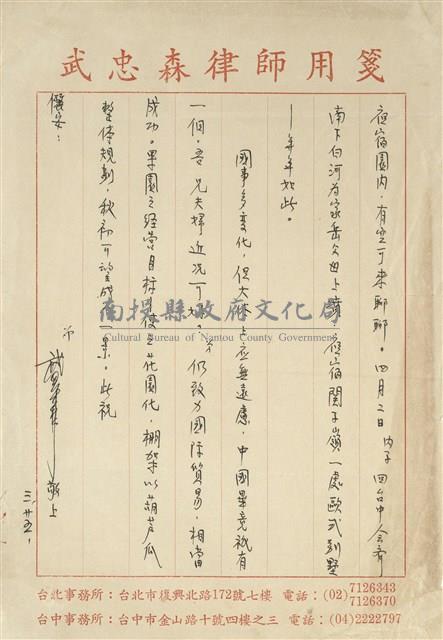 武忠森律師用箋
夜宿園內，有空可來聊聊。四月二日內子回台中会齊
南下白河為家岳父母上墳，夜宿關子嶺一處歐式別墅
—年年如此。
國事多变化，但大体上应無遠慮，中國畢竟祇有
一個。吾兄夫婦近况可好？弟仍致力國際貿易，相當
成功。果園之经营目标使之花園化，棚架以葫芦瓜
整体規劃，秋初可望成一景。此祝
儷安：
弟
武忠森 敬上
三．廿五．
南投縣政府文化局
Cultural Bureau of Nantou County Government
台北事務所：台北市復興北路172號七樓 電話：(02)7126343
7126370
台中事務所：台中市金山路十號四樓之三 電話：(04)2222797